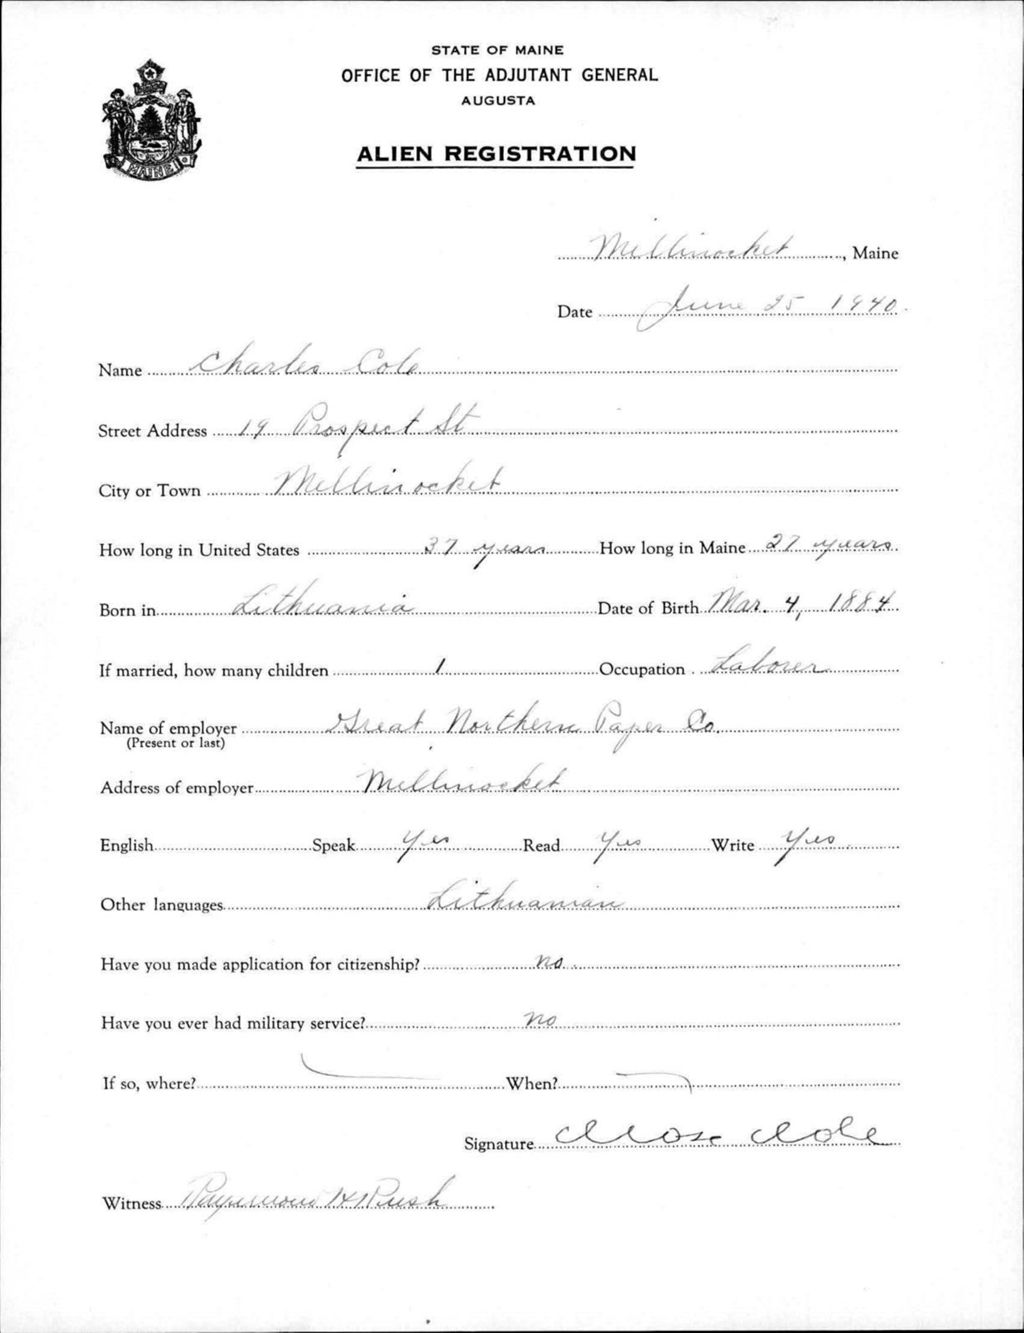 STATE OF MAINE
OFFICE OF THE ADJUTANT GENERAL
AUGUSTA
ALIEN REGISTRATION
MAINE
Millinocket, Maine
Date June 25 1940.
Name Charles Cole
Street Address 19 Prospect St
City or Town Millinocket
How long in United States 37 years How long in Maine 27 years.
Born in Lithuania Date of Birth Mar. 4, 1884
If married, how many children 1 Occupation Laborer
Name of employer Great Northern Paper Co.
(Present or last)
Address of employer Millinocket
English Speak Yes Read Yes Write Yes
Other languages Lithuanian
Have you made application for citizenship? No
Have you ever had military service? No
If so, where? When?
Signature Cole
Witness Raymond H Rush